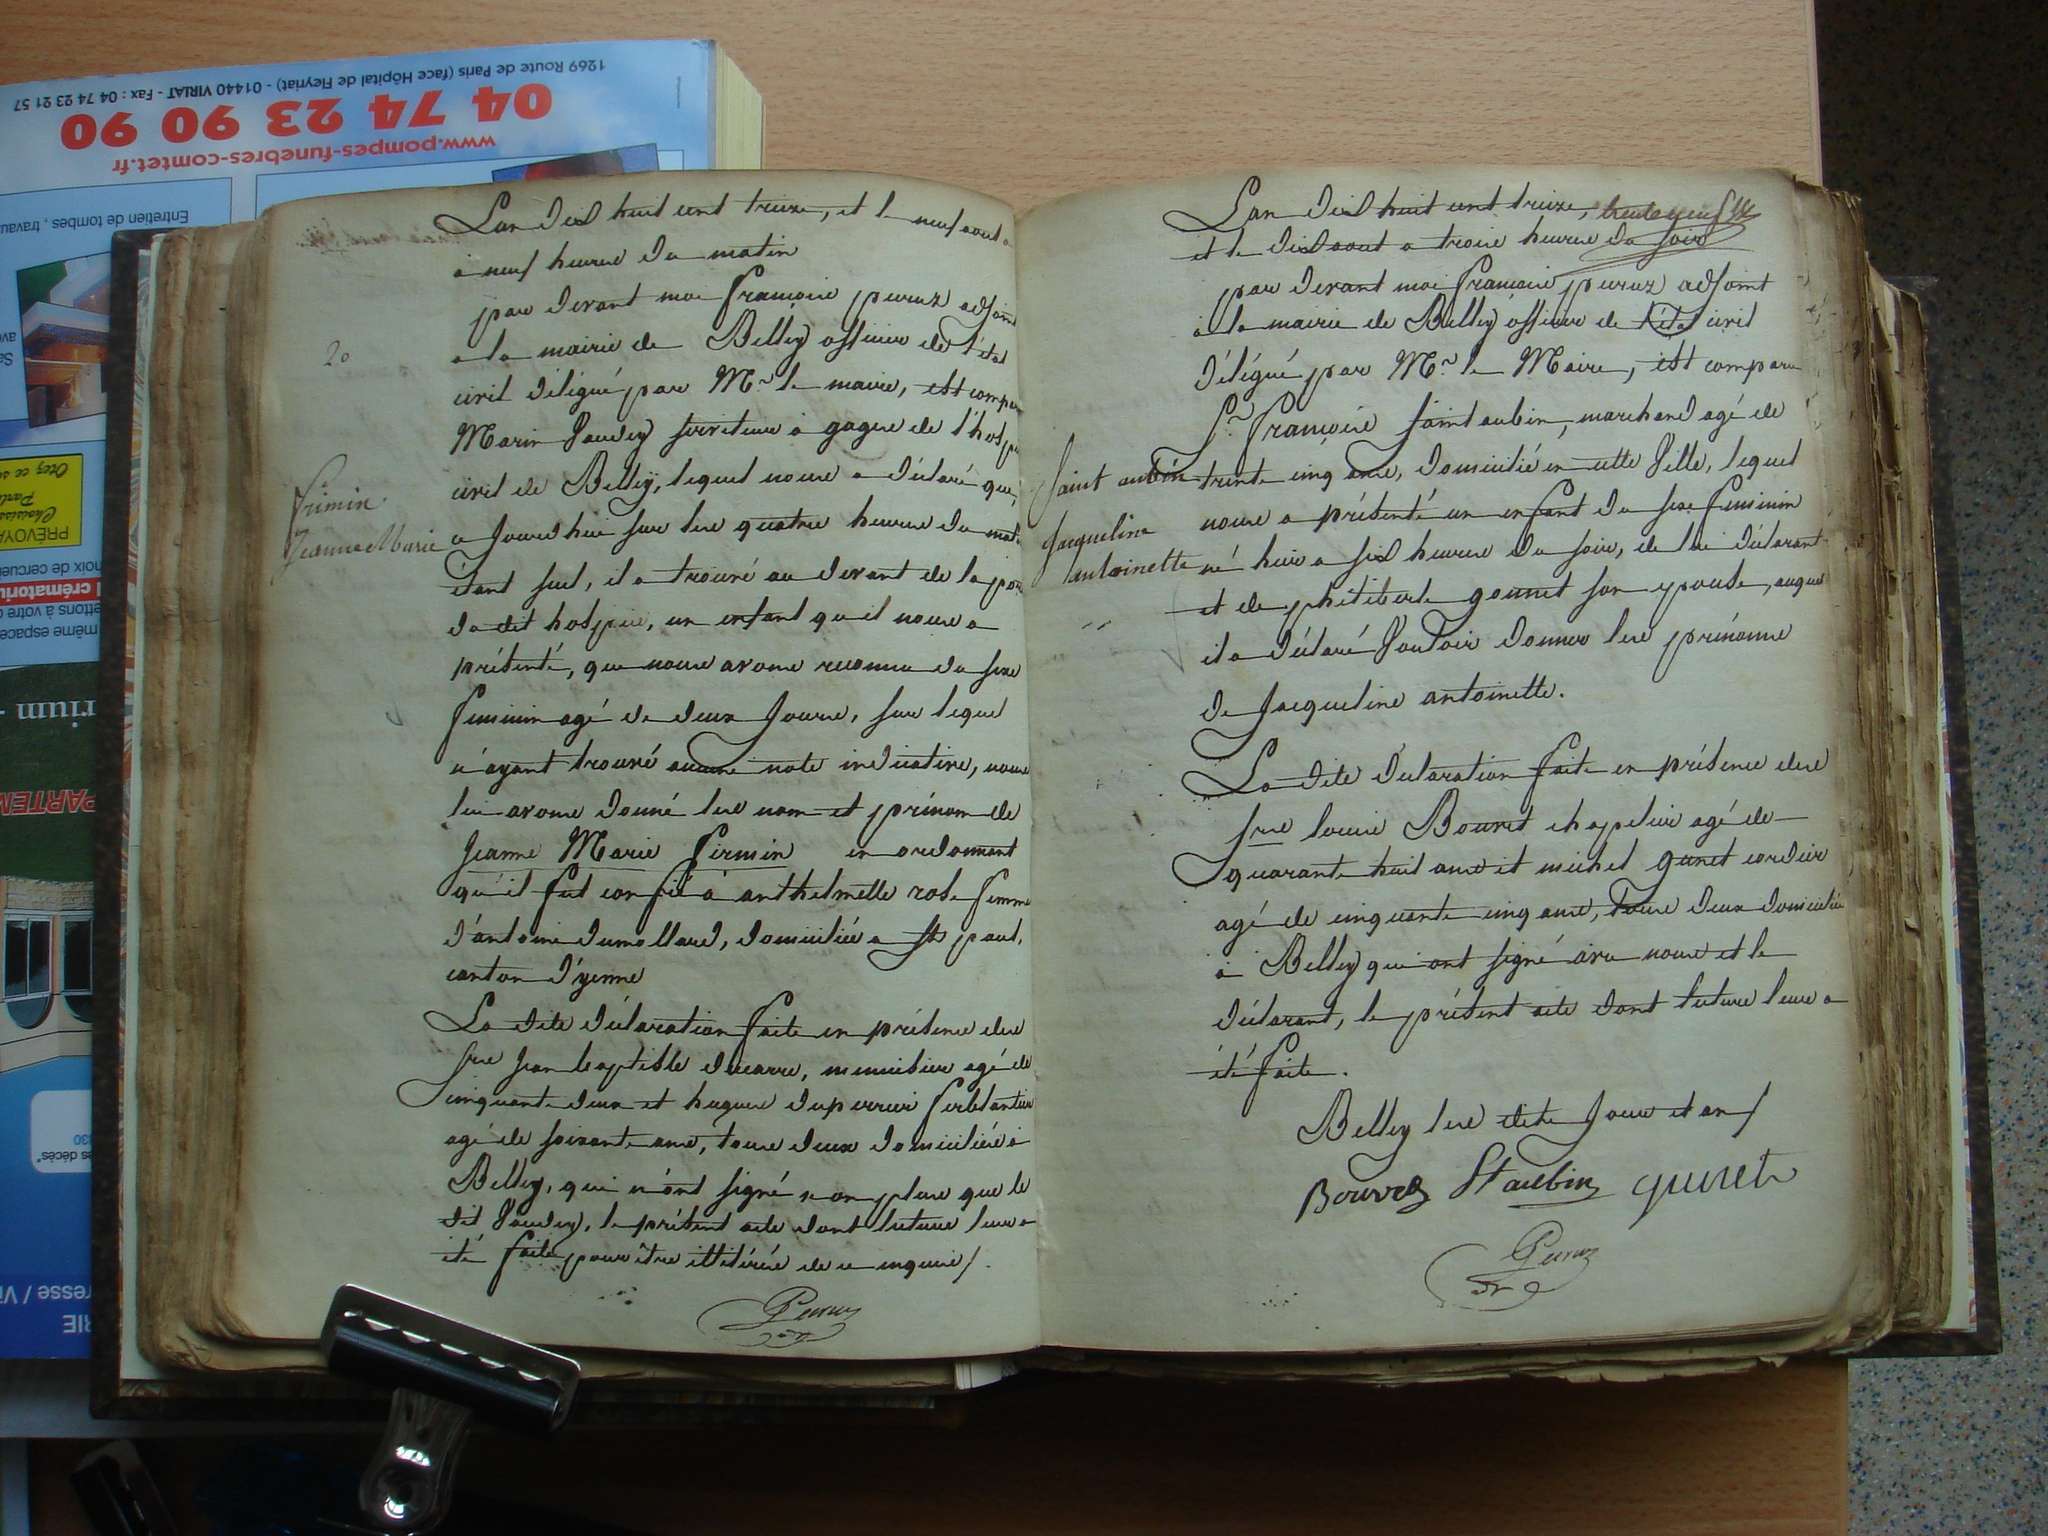 1269 Route de Paris (face Hôpital de Fleyriat) - 01440 VIRIAT - Fax : 04 74 23 21 57
04 74 23 90 90
www.pompes-funebres-comtet.fr
Entretien de tombes, travau
PRÉVOYA
l crématoriu
même espace
rium -
PARTEM
resse / Vi
RIE
L'an dix huit cent treize, et le neuf aout
à neuf heures du matin
par devant moi françois peruz adjoint
a la mairie de Belley officier de l'état
civil délégué par Mr le maire, est compar
20
Marin Paudey serviteur à gages de l'hospi
civil de Belley, lequel nous a déclaré que
firmin
Jeanne Marie
a Jourdhui sur les quatre heures du mat
étant seul, il a trouvé au devant de la por
du dit hospice, un enfant qu'il nous a
présenté, que nous avons reconnu du sexe
feminin agé de deux Jours, sur lequel
n'ayant trouvé aucune note indicative, nous
lui avons donné les nom et prénom de
Jeanne Marie firmin en ordonnant
qu'il fut confié à anthelmette rose femme
d'antoine dumollard, domiciliée a St paul,
canton d'yenne
La dite déclaration faite en présence des
srs Jean baptiste ducarre, menuisier agé de
cinquante deux et hugues duperrier ferblantier
agé de soixante ans, tous deux domiciliés à
Belley, qui n'ont signé non plus que le
dit Paudey, le présent acte dont lecture leur a
été faite pour être illitérés de ce enquis /.
Peruz
L'an dix huit cent treize,
et le dix aout a trois heures du soir
par devant moi françois peruz adjoint
à la mairie de Belley officier de l'éta civil
délégué par Mr le Maire, est comparu
Sr françois saint aubin, marchand agé de
Saint aubin
Jacqueline
antoinette
trente cinq ans, domicilié en cette ville, lequel
nous a présenté un enfant du sexe feminin
né hier a six heures du soir, de lui déclarant
et de philiberte gonnet son epouse, auquel
il a déclaré vouloir donner les prénoms
de Jacqueline antoinette.
La dite déclaration faite en présence des
srs louis Bouvet chapelier agé de
quarante huit ans et michel gunet cordier
agé de cinquante cinq ans, tous deux domiciliés
à Belley qui ont signé avec nous et le
déclarant, le présent acte dont lecture leur a
été faite.
Belley les dits Jour et an /
Bouvet St aubin gunet
Peruz